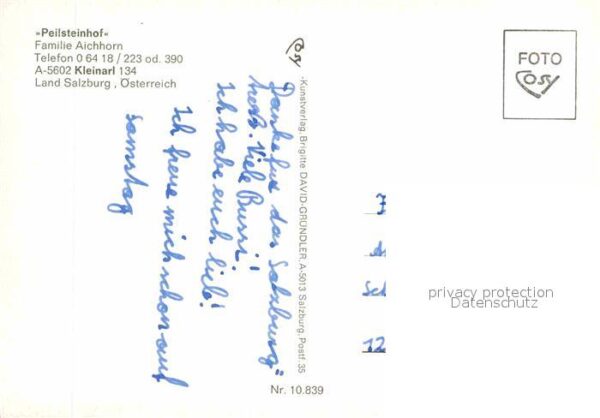 »Peilsteinhof«
Familie Aichhorn
Telefon 0 64 18 / 223 od. 390
A-5602 Kleinarl 134
Land Salzburg , Österreich
Danke für das Salzburg"
Viele Bussi!
Ich habe euch lieb!
Ich freue mich schon auf
Samstag
Cosy
-Kunstverlag, Brigitte DAVID-GRÜNDLER, A-5013 Salzburg, Postf. 35
Nr. 10.839
FOTO
Cosy
12
privacy protection
Datenschutz